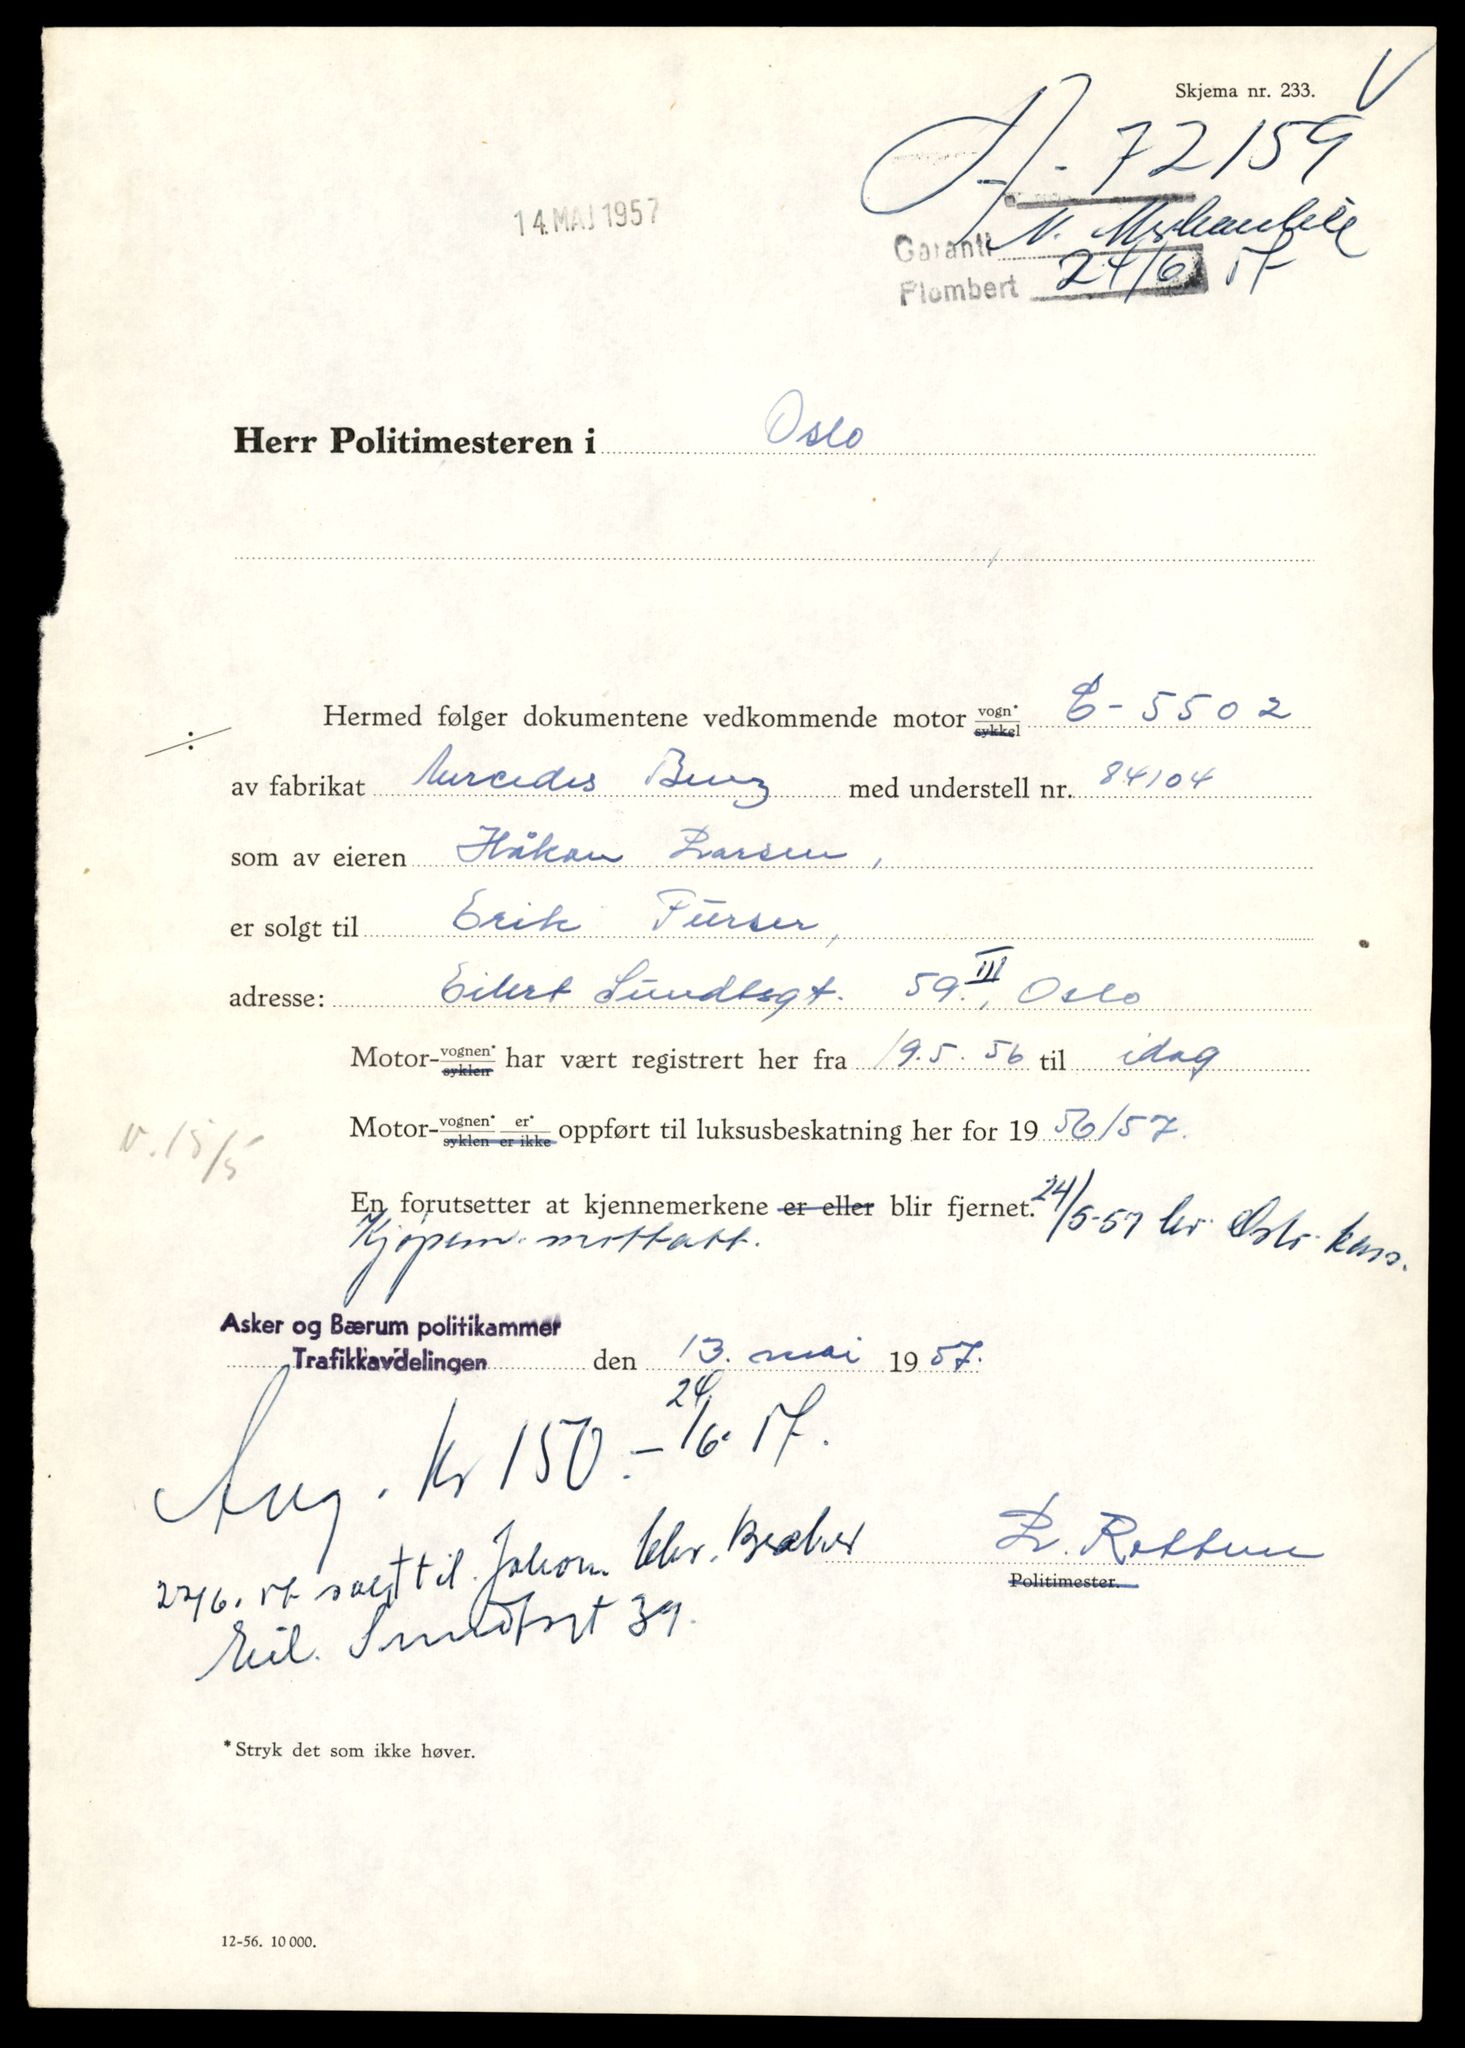 Skjema nr. 233.
A - 72159
14 MAI 1957
Garanti N.
Plombert 24/6 57
Herr Politimesteren i Oslo
Hermed følger dokumentene vedkommende motor vogn* sykkel E - 5502
av fabrikat Mercedes Benz med understell nr. 84104
som av eieren Håkon Larsen,
er solgt til Erik Fürser,
adresse: Eilert Sundtsgt. 59. III, Oslo
Motor- vognen* syklen har vært registrert her fra 19.5.56 til idag
Motor- vognen* syklen er* er ikke oppført til luksusbeskatning her for 19 56/57.
v. 15/5
En forutsetter at kjennemerkene er eller blir fjernet. 24/5-57
Kjøpem. mottatt.
Asker og Bærum politikammer
Trafikkavdelingen den 13. mai 1957.
Avg. kr 150.- 24/6 57.
57 solgt til Johan Chr.
Eil. Sundtsgt 39.
Politimester.
*Stryk det som ikke høver.
12-56. 10 000.